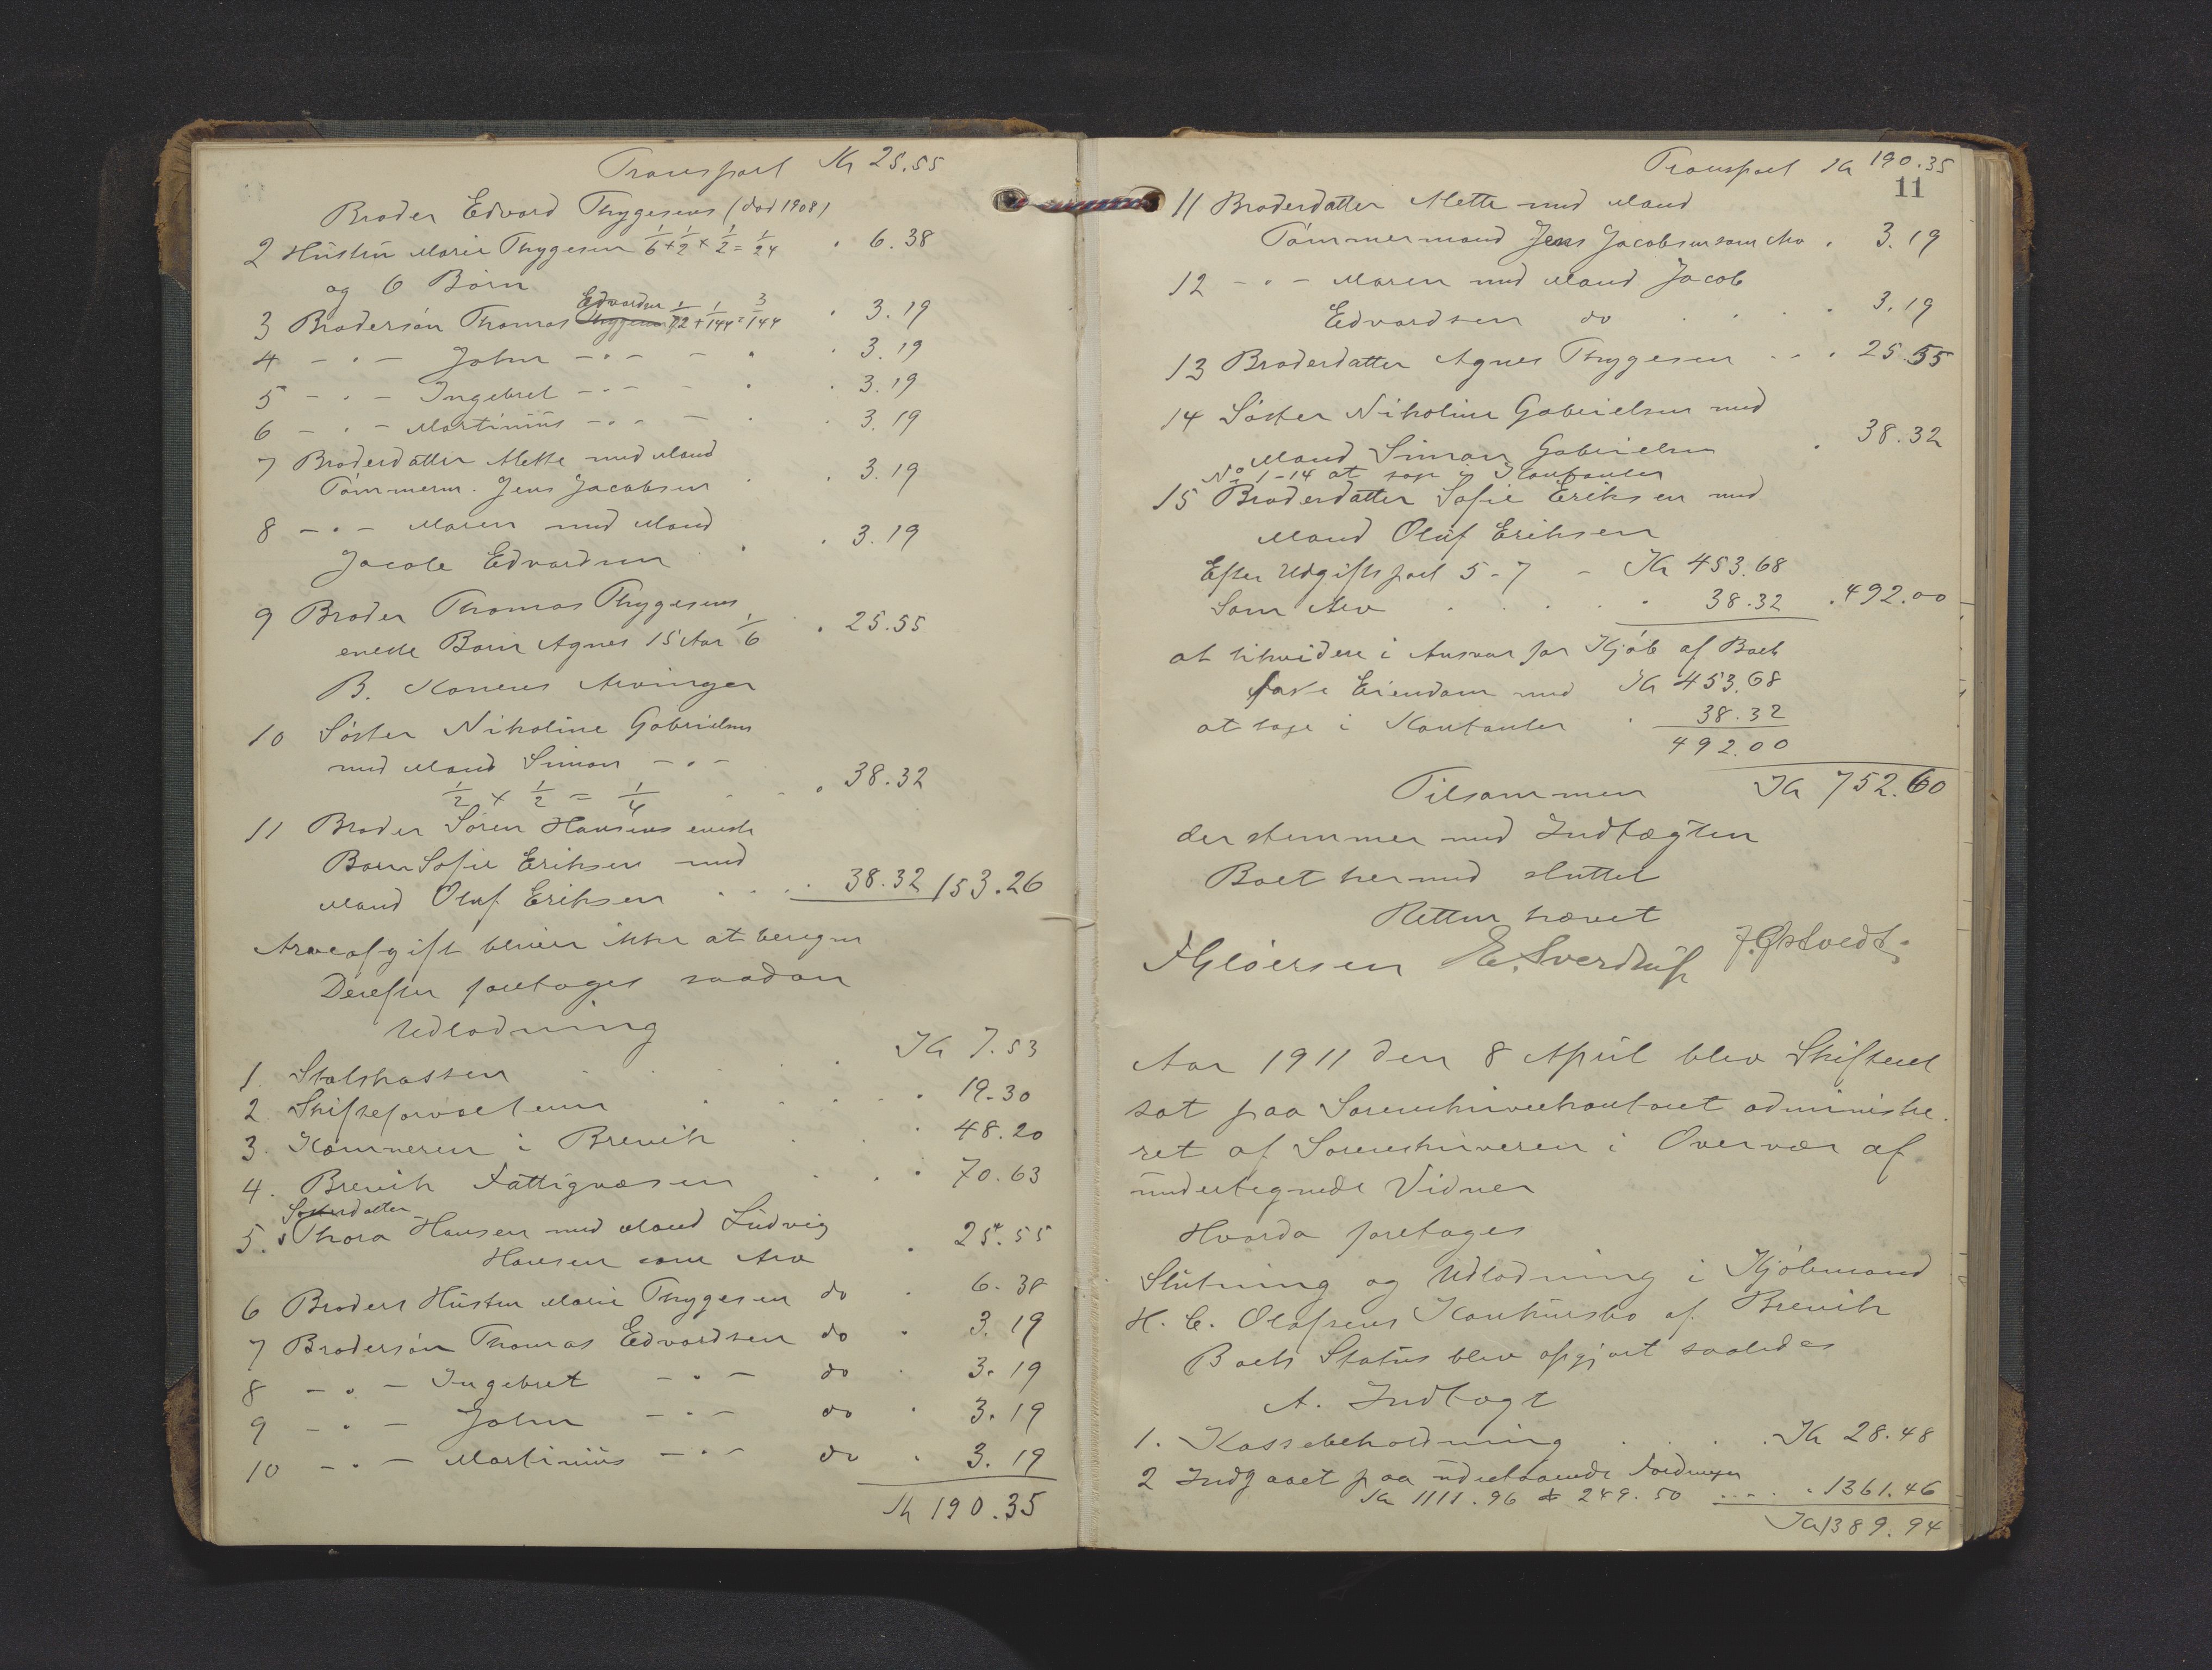 Transport Kr 25.55
Broder Edvard Thygesens (død 1908)
2 Hustru Marie Thygesen 1/6 + 1/2 × 1/2 = 1/24 " 6.38
og 6 Børn
3 Brodersøn Thomas Edvardsen 1/72 + 1/144 = 3/144 " 3.19
4 - " - John - " - - " " 3.19
5 - " - Ingebret - " - - " " 3.19
6 - " - Martinius - " - - " " 3.19
7 Broderdatter Mette med Mand
Tømmerm. Jens Jacobsen " " 3.19
8 - " - Maren med Mand
Jacob Edvardsen " " 3.19
9 Broder Thomas Thygesens
eneste Barn Agnes 15 Aar 1/6 " 25.55
B. Konens Arvinger
10 Søster Nikoline Gabrielsen
med Mand Simon - " -
1/2 × 1/2 = 1/4 " 38.32
11 Broder Søren Hansens eneste
Barn Sofie Eriksen med
Mand Oluf Eriksen . . . 38.32 153.26
Arveafgift bliver ikke at beregne
Derefter foretages saadan
Udlodning
1. Statskassen . . . Kr 7.53
2 Skifteforvalteren . . . " 19.30
3. Kæmneren i Brevik . . " 48.20
4. Brevik Fattigvæsen . . " 70.63
Søsterdatter
5. Thora Hansen med Mand Ludvig
Hansen som Arv " 25.55
6 Broders Hustru Marie Thygesen do " 6.38
7 Brodersøn Thomas Edvardsen do " 3.19
8 - " - Ingebret - " - do " 3.19
9 - " - John - " - do " 3.19
10 - " - Martinius - " - do " 3.19
Kr 190.35
Transport Kr 190.35
11
11 Broderdatter Mette med Mand
Tømmermand Jens Jacobsen som Arv " 3.19
12 - " - Maren med Mand Jacob
Edvardsen do . . . " 3.19
13 Broderdatter Agnes Thygesen . . " 25.55
14 Søster Nikoline Gabrielsen med
Mand Simon Gabrielsen " 38.32
No 1-14 at tage i Kontanter
15 Broderdatter Sofie Eriksen med
Mand Oluf Eriksen
Efter Udgiftspost 5-7 - Kr 453.68
Som Arv . . . . " 38.32 " 492.00
at likvidere i Ansvar for Kjøb af Boets
faste Eiendom med Kr 453.68
at tage i Kontanter " 38.32
492.00
Tilsammen Kr 752.60
der stemmer med Indtægten
Boet hermed sluttet
Retten hævet
F Gløersen E. Sverdrup J. Østvedt.
Aar 1911 den 8 April blev Skifteret
sat paa Sorenskriverkontoret administre-
ret af Sorenskriveren i Overvær af
undertegnede Vidner
Hvorda foretages
Slutning og Udlodning i Kjøbmand
H. C. Olafsens Konkursbo af Brevik
Boets Status blev opgjort saaledes
A. Indtægt
1. Kassebeholdning . . . . Kr 28.48
2 Indgaaet paa udestaaende Fordringer
Kr 1111.96 + 249.50 . . . . " 1361.46
Kr 1389.94